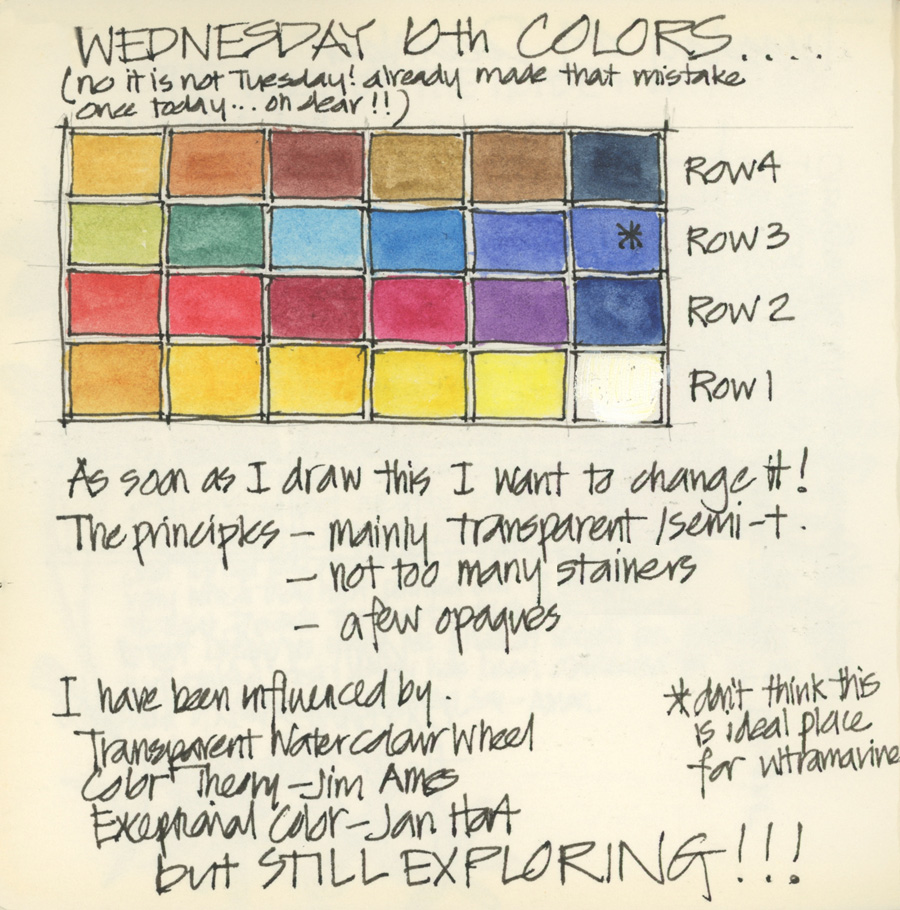 WEDNESDAY 10th COLORS....
(no it is not Tuesday! already made that mistake
once today... oh dear!!)
Row 4
Row 3
*
Row 2
Row 1
As soon as I draw this I want to change it!
The principles – mainly transparent/semi-t.
– not too many stainers
– a few opaques
I have been influenced by.
Transparent Watercolour Wheel
Color Theory – Jim Ames
Exceptional Color – Jan Hart
but STILL EXPLORING!!!
* don't think this
is ideal place
for ultramarine